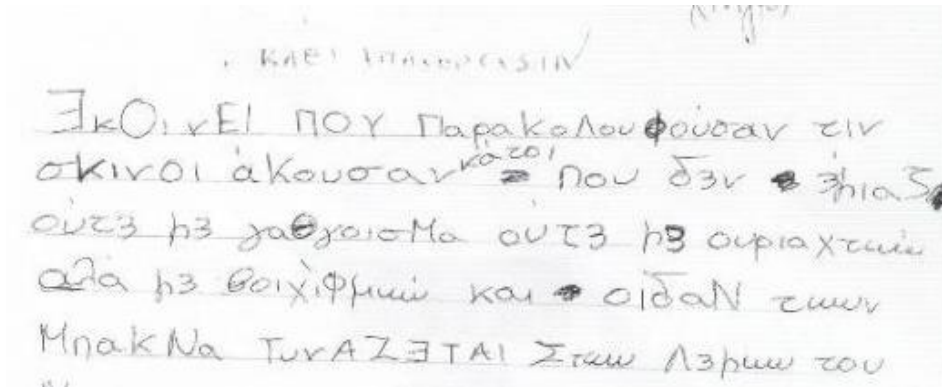 ΕκΟινΕΙ ΠΟΥ Παρακολουφούσαν τιν
σκινοι άκουσαν κάτοι που δεν έμιαζ
ούτε με γαθγοισΜα ούτε με ουριαχτωώ
αλά με θοιχίφμωώ και οίδαΝ τωων
ΜπακΝα ΤυνΑΖΕΤΑΙ Στωω Λεμωω του